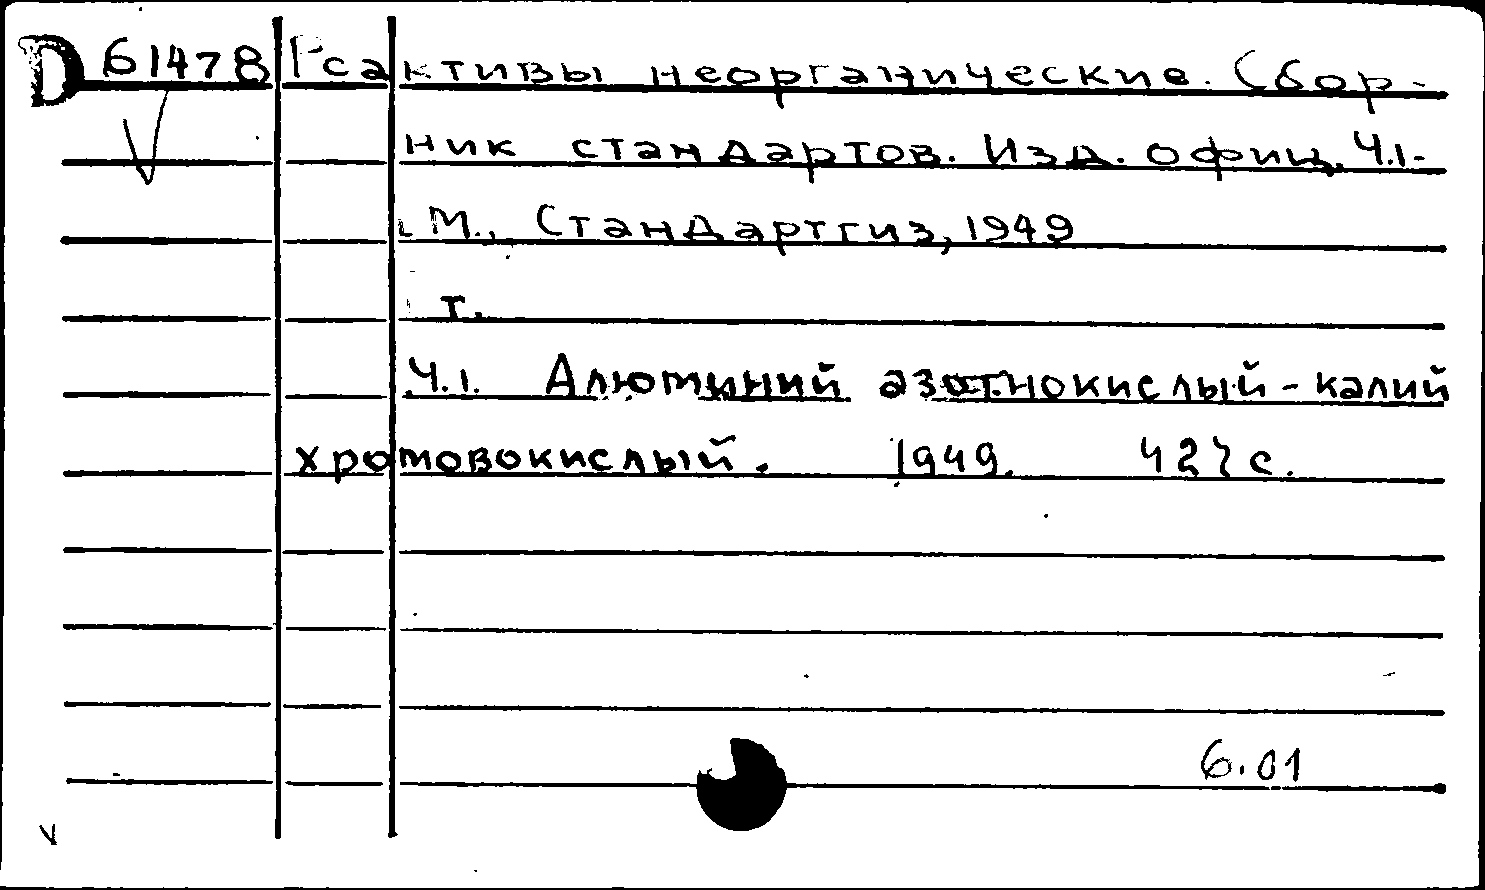 D 61478 Реактивы неорганические. Сбор-
ник стандартов. Изд. офиц. Ч.1-
М., Стандартгиз, 1949
т.
Ч.1. Алюминий азотнокислый - калий
хромовокислый. 1949. 427 с.
6.01